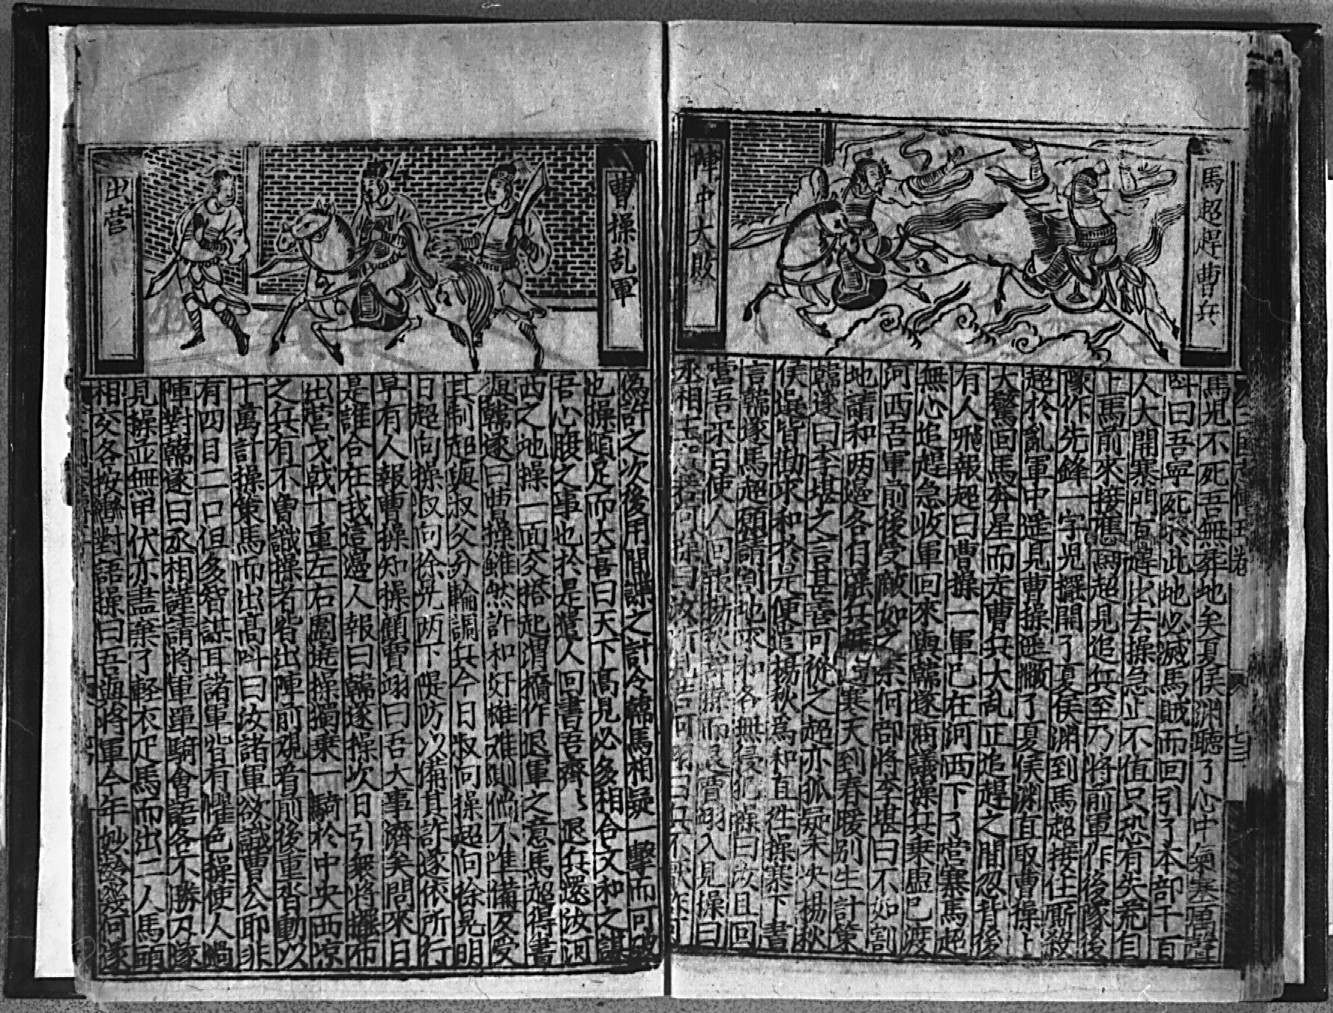 馬超趕曹兵
陣中大敗
馬兒不死吾無葬地矣夏侯淵聽了心中氣塞萬聲
叫曰吾寧死於此地必滅馬賊而回引了本部千百
人大開寨門直趕出去操急止不值只恐有失飛自
上馬前來接應馬超見追兵至乃將前軍作後隊後
隊作先鋒一字兒擺開了夏侯淵到馬超接住廝殺
超於亂軍中遙見曹操撇了夏侯淵直取曹操
大驚回馬奔星而走曹兵大乱正追趕之間忽背後
有人飛報超曰曹操一軍已在河西下了营寨馬超
無心追趕急收軍回來與韓遂商議操兵乗虛已渡
河西吾軍前後受敵如之奈何部將李堪曰不如割
地請和两邊各自罷兵過寒天到春暖別生計策
韓遂曰李堪之言甚善可從之超亦狐疑未决楊秋
侯選皆勸求和於是便遣楊秋為和直徃操寨下書
言韓遂馬超願請割地求和各無侵犯操曰汝且回
营吾來日使人回報楊秋辞操而退賈詡入見操曰
丞相主
曹操乱軍
出营
偽許之次後用間諜之計令韓馬相疑一擊而可破
也操頓足而大喜曰天下髙見必多相合文和之謀
吾心腹之事也於是遣人回書吾齊退兵還汝河
西之地操一面交搭起渭橋作退軍之意馬超得書
與韓遂曰曹操雖然許和奸雄难測倘不準備反受
其制超與叔父分輪調兵今日叔向操超向徐晃明
日超向操叔向徐晃两下隄防以備其許遂依所行
早有人報曹操知操顧賈詡曰吾大事濟矣問來日
是誰合在我這邊人報曰韓遂操次日引衆將擺布
出营戈戟丁重左右圍繞操獨乗一騎於中央西凉
之兵有不曾識操者皆出陣前視看前後重沓動以
十萬計操策馬而出髙叫曰汝諸軍欲識曹公耶非
有四目二口但多智謀耳諸軍皆有懼色操使人過
陣對韓遂曰丞相謹請將軍單騎會語各不勝刀隊
見操並無甲伏亦盡棄了輕衣疋馬而出二人馬頭
相交各按轡對語操曰吾與將軍今年妙齡幾何遂